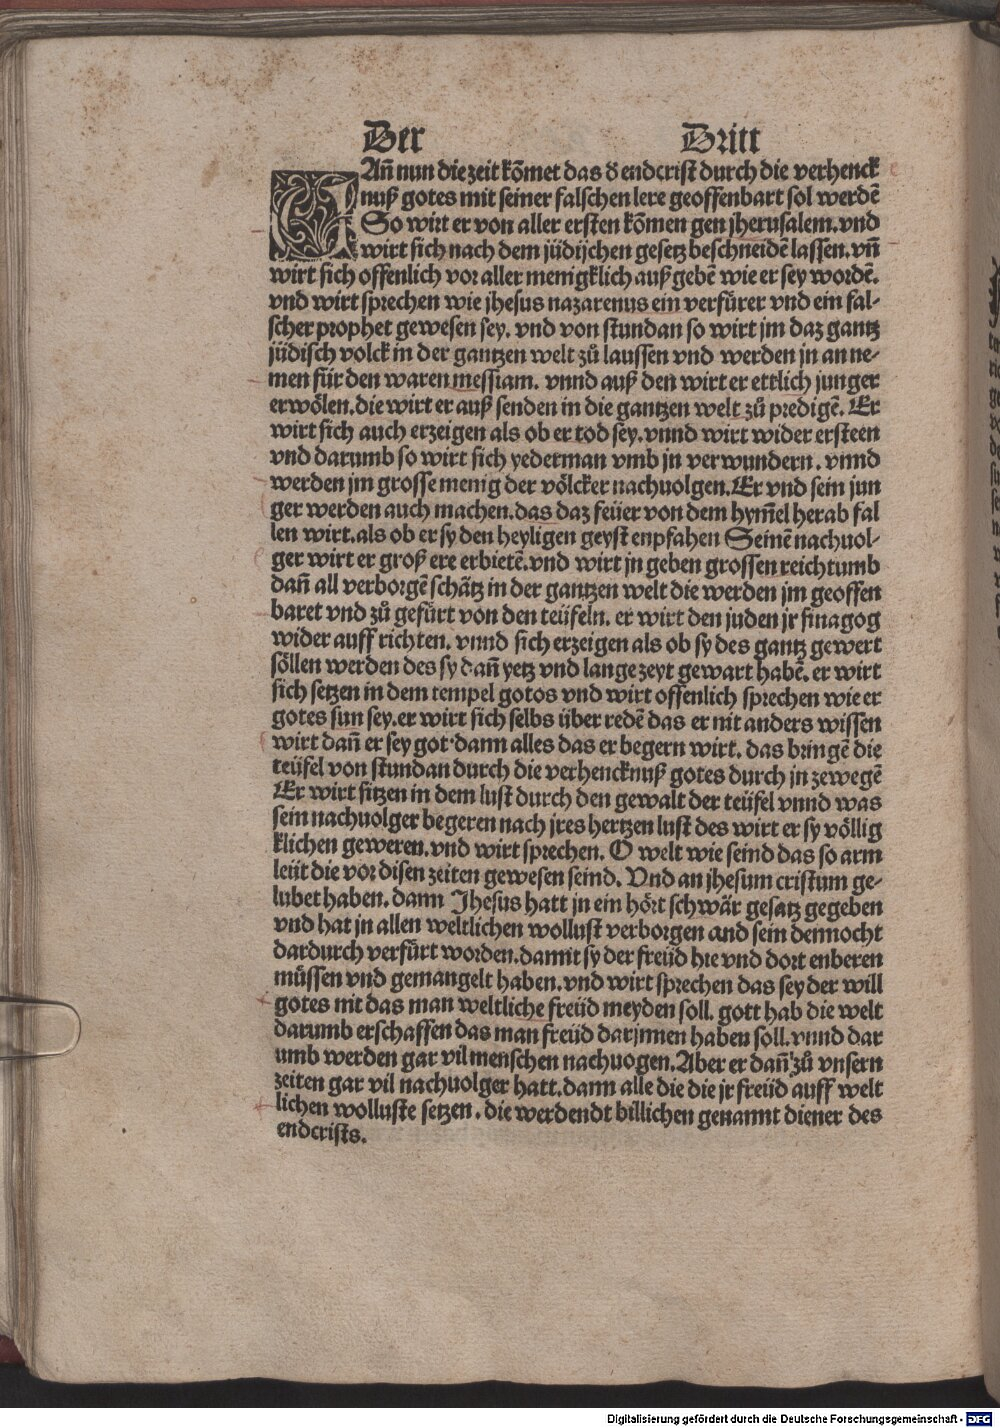 Der Dritt
WAn̄ nun die zeit kōmet das d̕ endcrist durch die verhenck
nuß gotes mit seiner falschen lere geoffenbart sol werdē
So wirt er von aller ersten kōmen gen jherusalem. vnd
wirt sich nach dem jüdijchen gesetz beschneidē lassen. vn̄
wirt sich offenlich vor aller menigklich auß gebē wie er sey wordē.
vnd wirt sprechen wie jhesus nazarenus ein verfürer vnd ein fal-
scher prophet gewesen sey. vnd von stundan so wirt jm daz gantz
jüdisch volck in der gantzen welt zů laussen vnd werden jn an ne-
men für den waren messiam. vnnd auß den wirt er ettlich junger
erwölen. die wirt er auß senden in die gantzen welt zů predigē. Er
wirt sich auch erzeigen als ob er tod sey. vnnd wirt wider ersteen
vnd darumb so wirt sich yederman vmb jn verwundern. vnnd
werden jm grosse menig der völcker nachuolgen. Er vnd sein jun
ger werden auch machen. das daz feüer von dem hym̄el herab fal
len wirt. als ob er sy den heyligen geyst enpfahen Seinē nachuol-
ger wirt er groß ere erbietē. vnd wirt jn geben grossen reichtumb
dan̄ all verborgē schätz in der gantzen welt die werden jm geoffen
baret vnd zů gefürt von den teüfeln. er wirt den juden jr sinagog
wider auff richten. vnnd sich erzeigen als ob sy des gantz gewert
söllen werden des sy dan̄ yetz vnd lange zeyt gewart habē. er wirt
sich setzen in dem tempel gotos vnd wirt offenlich sprechen wie er
gotes sun sey. er wirt sich selbs über redē das er nit anders wissen
wirt dan̄ er sey got. dann alles das er begern wirt. das bringē die
teüfel von stundan durch die verhencknuß gotes durch jn zewegē
Er wirt sitzen in dem lust durch den gewalt der teüfel vnnd was
sein nachuolger begeren nach jres hertzen lust des wirt er sy völlig
klichen geweren. vnd wirt sprechen. O welt wie seind das so arm
leüt die vor disen zeiten gewesen seind. Vnd an jhesum cristum ge-
lubet haben. dann Jhesus hatt jn ein hört schwär gesatz gegeben
vnd hat jn allen weltlichen wollust verborgen and sein dennocht
dardurch verfürt worden. damit sy der freüd hie vnd dort enberen
müssen vnd gemangelt haben. vnd wirt sprechen das sey der will
gotes nit das man weltliche freüd meyden soll. gott hab die welt
darumb erschaffen das man freüd darjnnen haben soll. vnnd dar
umb werden gar vil menschen nachuogen. Aber er dan̄ zů vnsern
zeiten gar vil nachuolger hatt. dann alle die die jr freüd auff welt
lichen wolluste setzen. die werdendt billichen genannt diener des
endcrists.
Digitalisierung gefördert durch die Deutsche Forschungsgemeinschaft - DFG